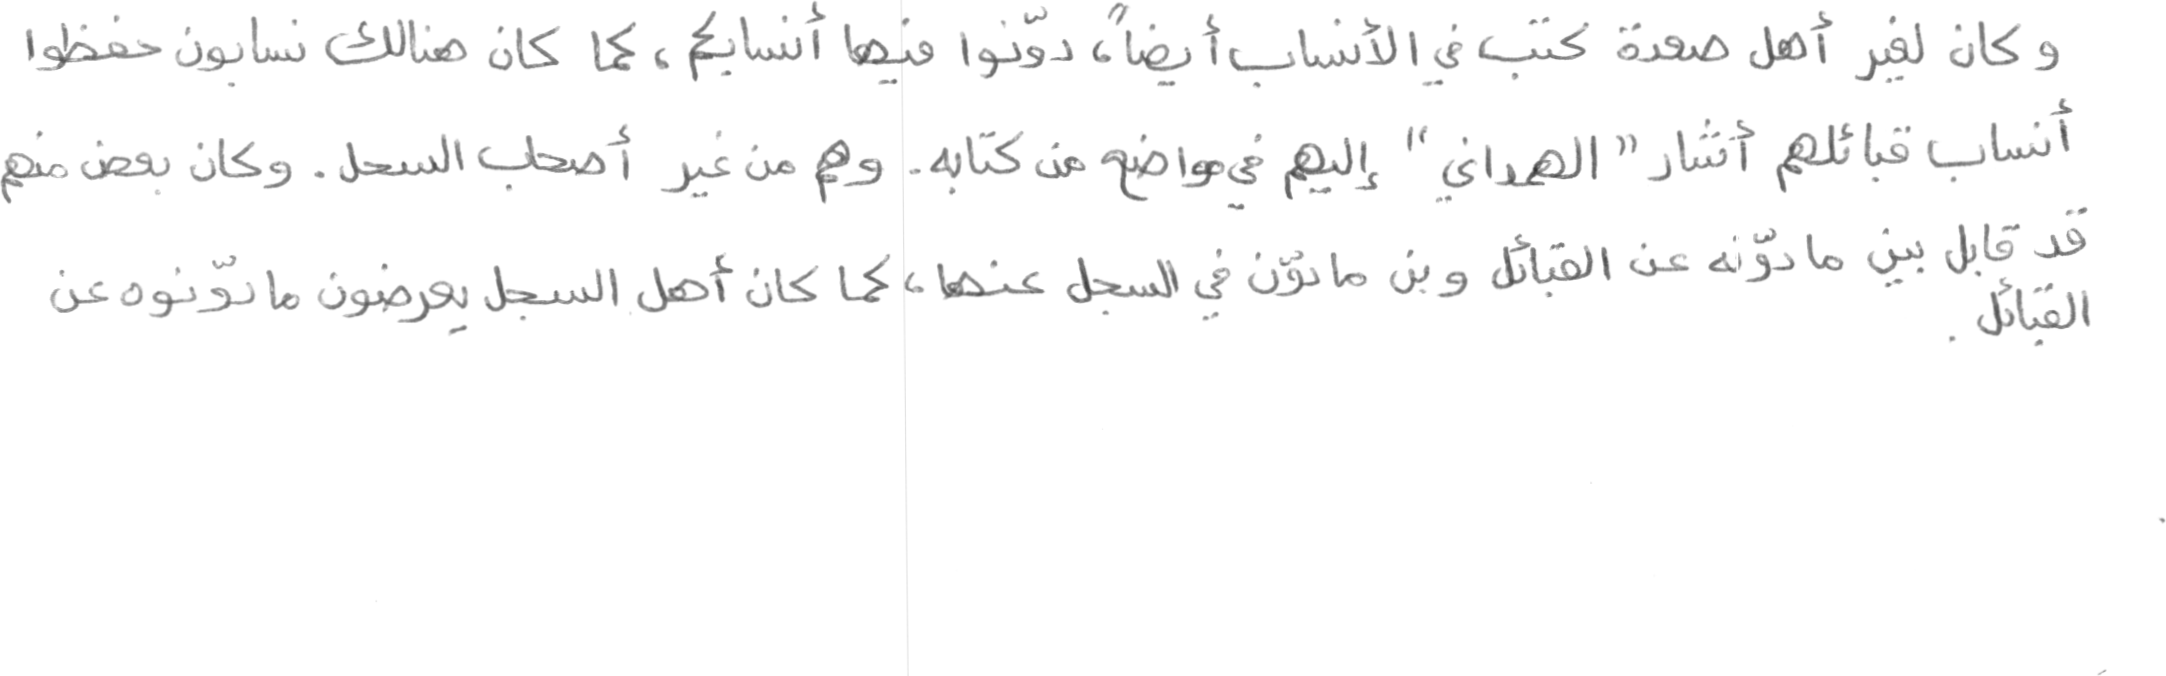 وكان لغير أهل صعدة كتب في الأنساب أيضاً، دوّنوا فيها أنسابكم، كما كان هنالك نسابون حفظوا
أنساب قبائلهم أشار "الهمداني" إليهم في مواضع من كتابه. وهم من غير أصحاب السجل. وكان بعض منهم
قد قابل بين ما دوّنه عن القبائل وبين ما دوّن في السجل عنها، كما كان أهل السجل يعرضون ما دوّنوه عن
القبائل.